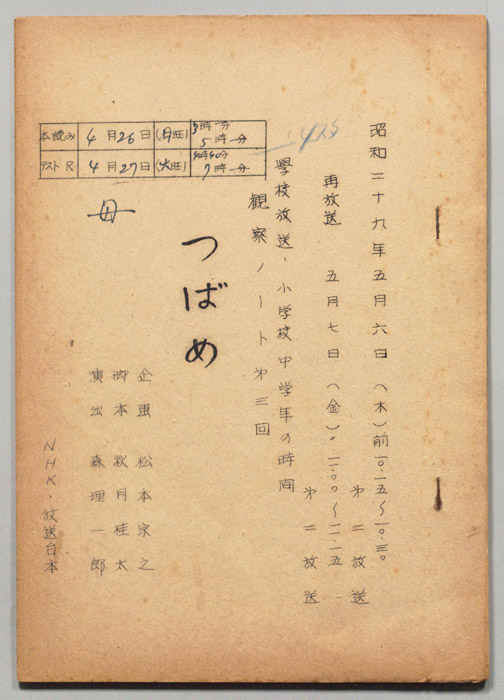 昭和二十九年五月六日（木）前一〇・一五〜一〇・三〇
第二放送
再放送　五月七日（金）〃一一・〇〇〜一一・一五
第二放送
學校放送、小学校中学年の時間
観察ノート第三回
つばめ
企画　松本宗之
脚本　秋月桂太
演出　森理一郎
NHK・放送台本
本読み 4月26日（月旺） 時一分 5時一分
テストR 4月27日（火旺） 7時一分
母